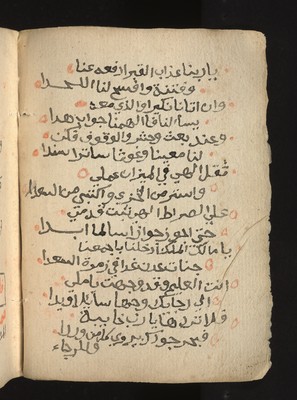 يا ربنا عذاب القبر ادفعه عنا
وفتنة وافسح لنا اللحدا
وان اتانا نكير او الذي معه
يسألنا فالهمنا جواب هدا
وعند بعث وحشر والوقوف فكن
لنا معينا وغوثا ساترا سندا
ثقل الهي في الميزان عملي
واسترني من الخزي واكتبني من السعدا
علي الصراط الهي ثبت قدمي
حتي اجوز جوازا سالما ابدا
يا مالك الملك ادخلنا باجمعنا
جنات عدن غدا في زمرة السعدا
انت العليم وقد وجهت يا املي
الي رجائك وجها سايلا ويدا
فلا تردنها يا رب خايبة
فبحر جودك يروي كل من وردا